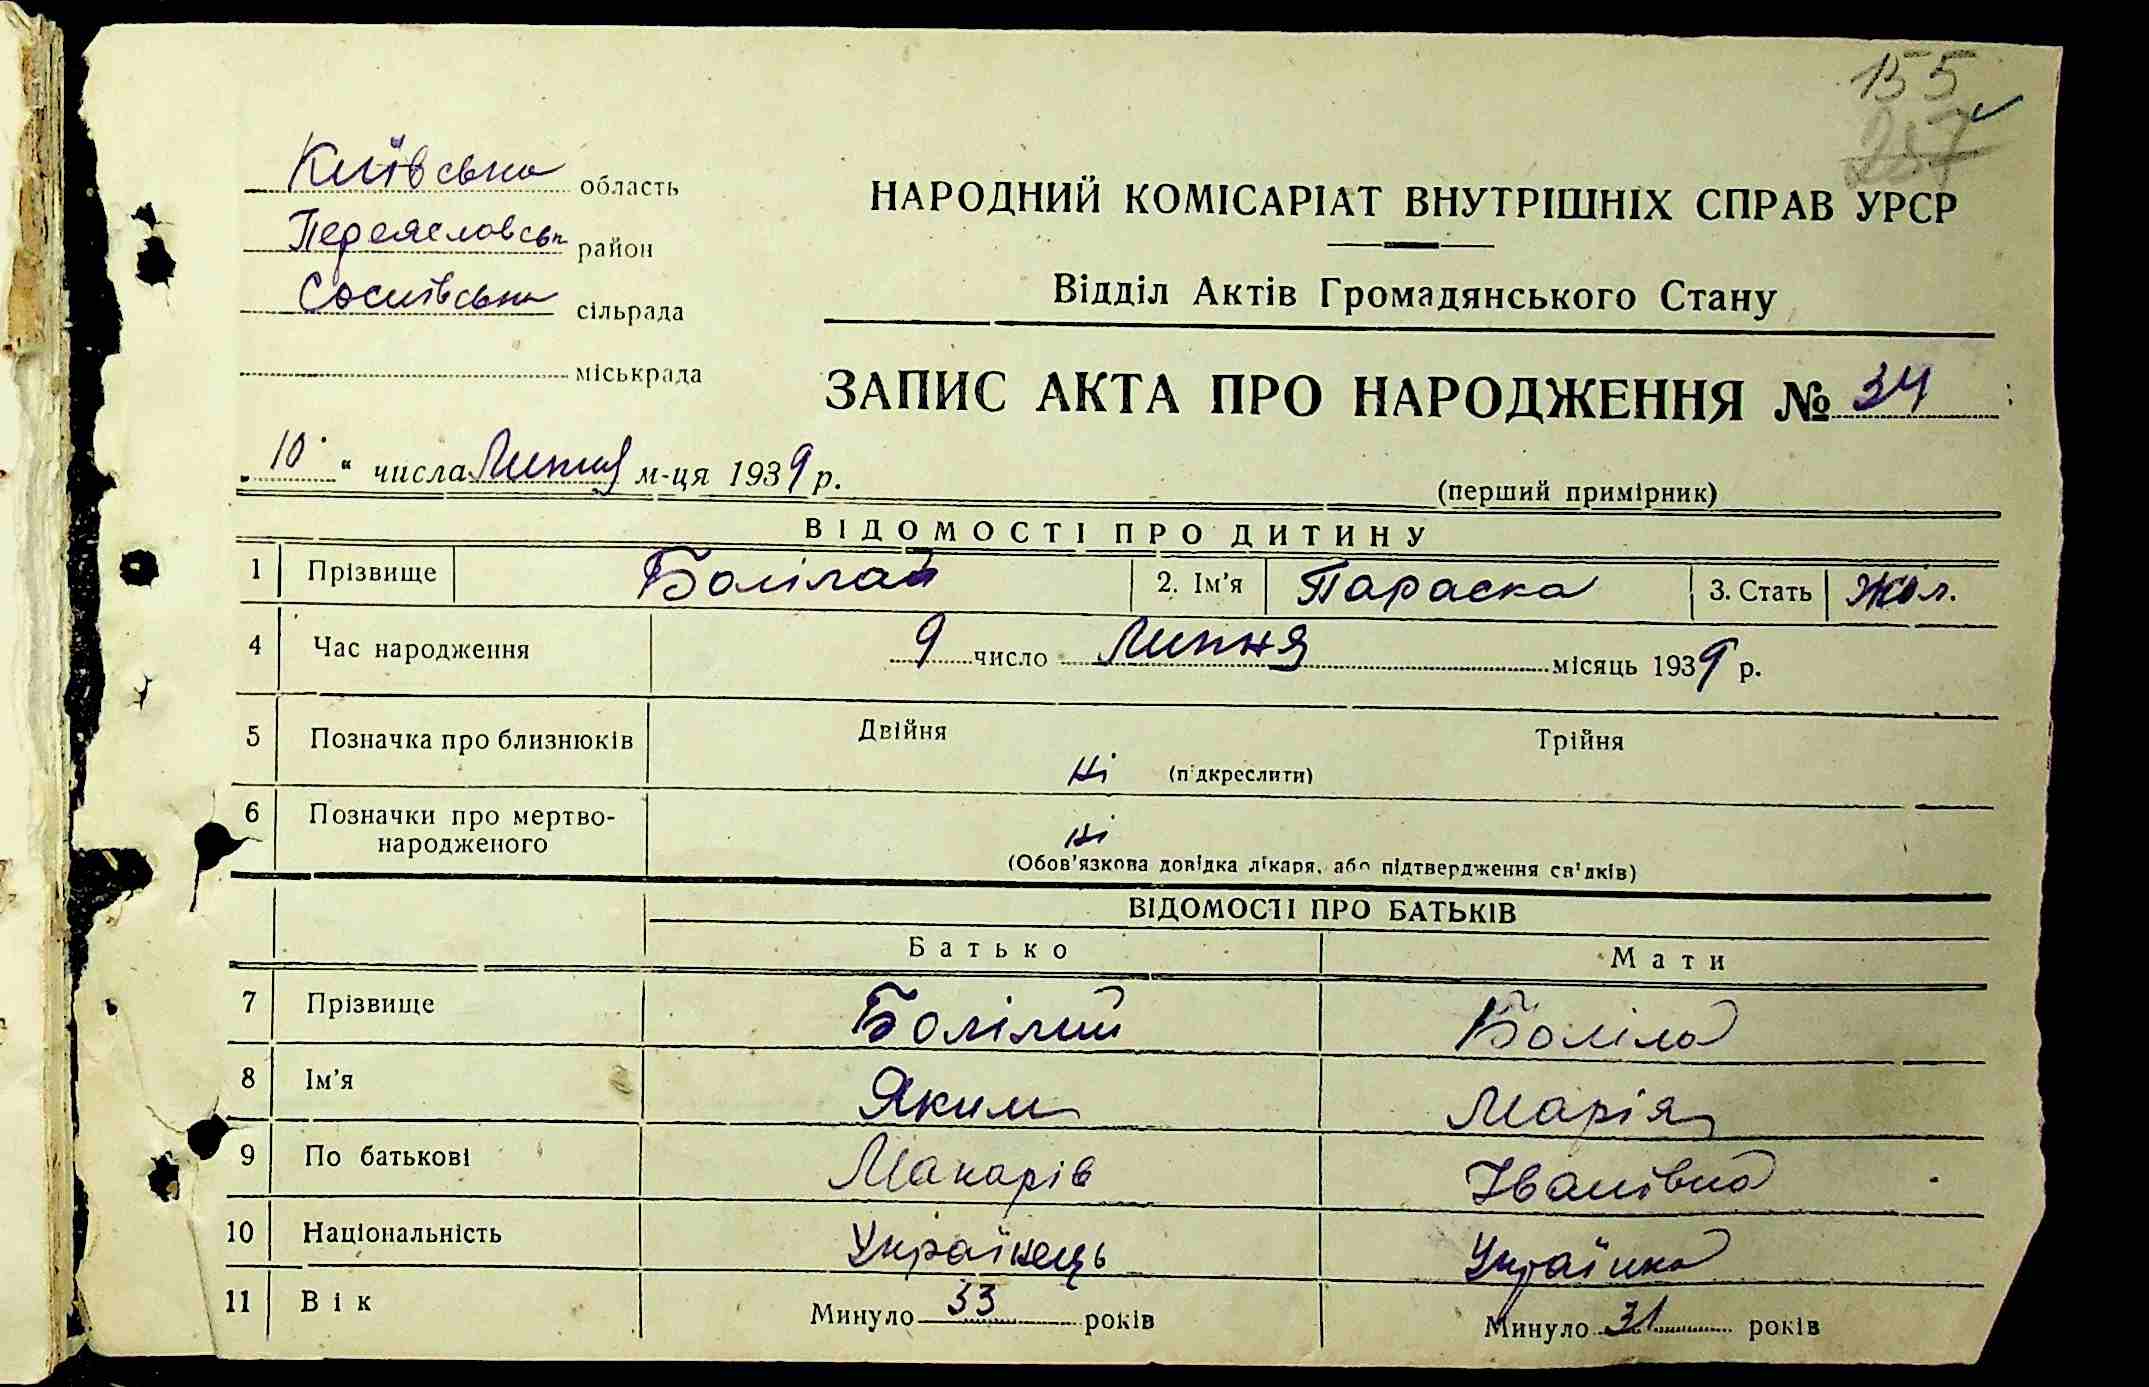 155
257
Київська область
Переясловськ район
Соснівська сільрада
міськрада
НАРОДНИЙ КОМІСАРІАТ ВНУТРІШНІХ СПРАВ УРСР
Відділ Актів Громадянського Стану
ЗАПИС АКТА ПРО НАРОДЖЕННЯ № 34
„10" числа Липня м-ця 1939 р.
(перший примірник)
ВІДОМОСТІ ПРО ДИТИНУ
1 Прізвище 2. Ім'я Параска 3. Стать Жін.
4 Час народження 9 число Липня місяць 1939 р.
5 Позначка про близнюків Двійня Трійня
ні (підкреслити)
6 Позначки про мертво-
народженого ні
(Обов'язкова довідка лікаря, або підтвердження св'дків)
ВІДОМОСТІ ПРО БАТЬКІВ
Батько Мати
7 Прізвище Болілий Боліла
8 Ім'я Яким Марія
9 По батькові Макарів Іванівна
10 Національність Українець Українка
11 Вік Минуло 33 років Минуло 31 років